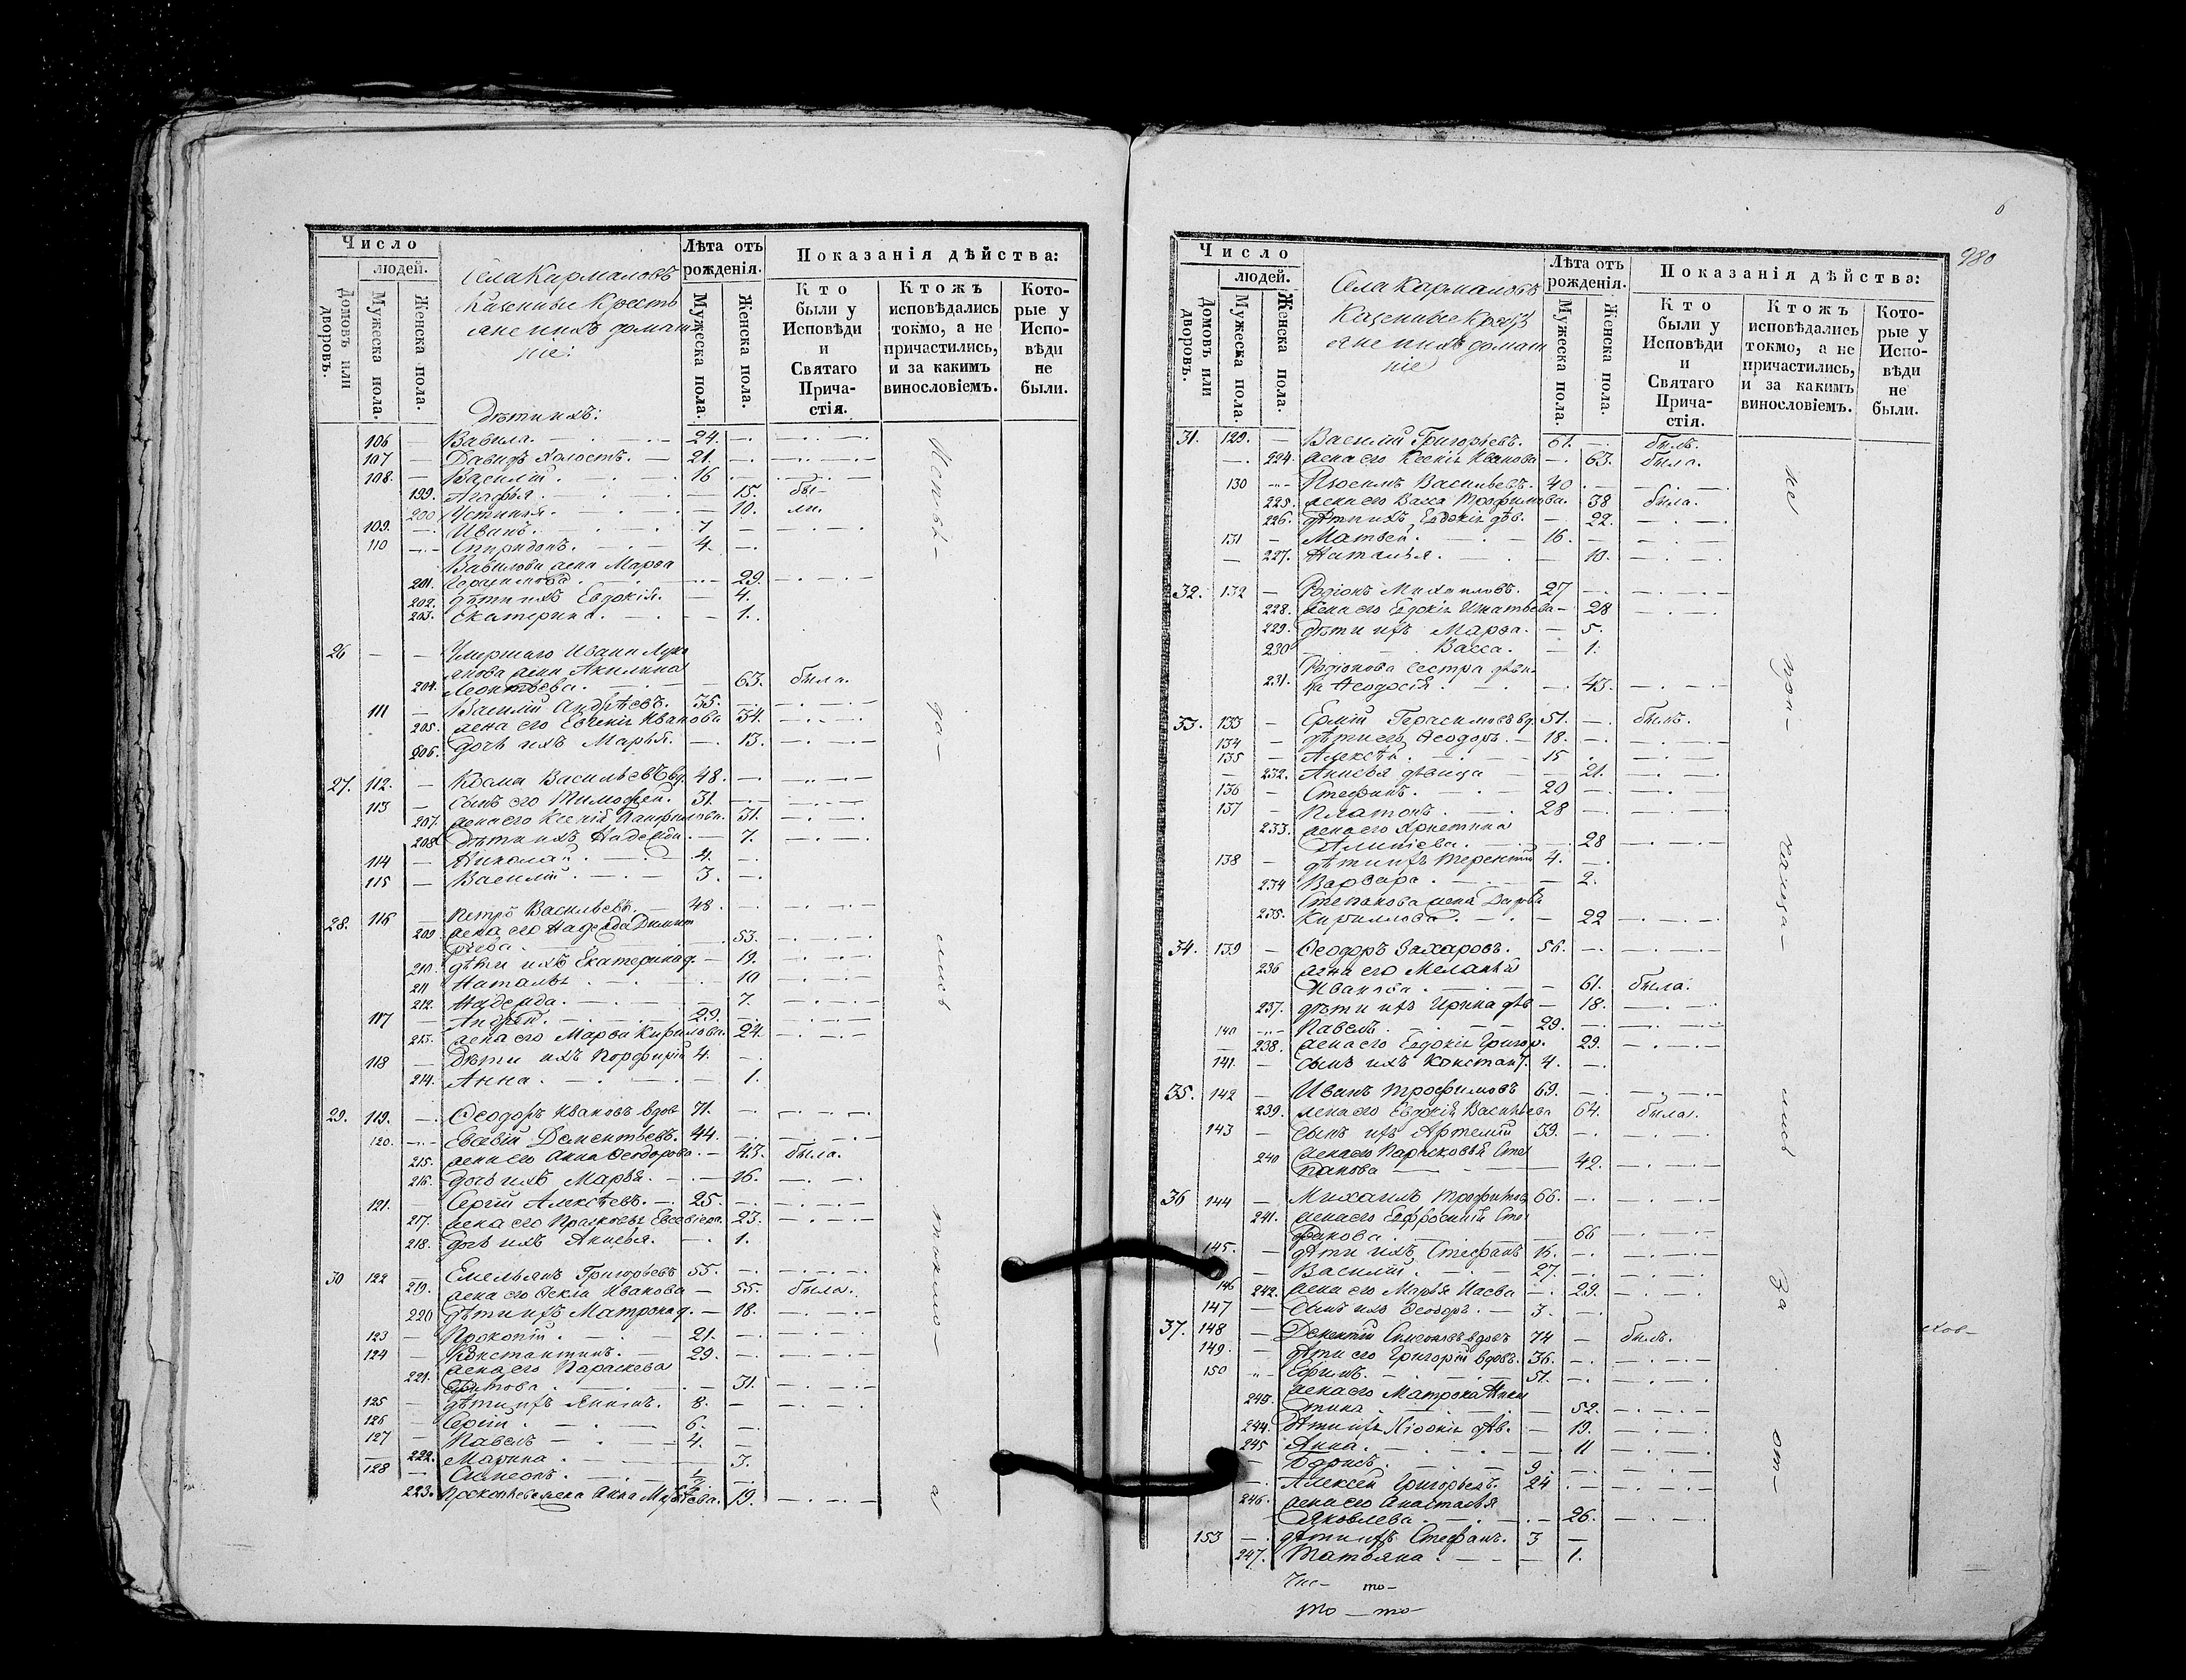 Число
людей.
Домовъ или дворовъ.
Мужеска пола.
Женска пола.
Села Кармаловъ
Казенные Кресть
яне и ихъ домаш
ніе:
Лѣта отъ рожденія.
Мужеска пола.
Женска пола.
Показанія дѣйства:
Кто были у Исповѣди и Святаго Прича-стія.
Ктожъ исповѣдались токмо, а не причастились, и за какимъ винословіемъ.
Кото-рые у Испо-вѣди не были.
Дѣти ихъ:
106 — Вавила. 24.
107 — Давидъ холостъ. 21.
108. — Василій. 16
199. Агафья. 15. бы-
200 Устинья. 10. ли.
109. — Иванъ. 7
110 — Спиридонъ. 4.
Вавилова жена Марѳа
201. Герасимова. 29.
202. дѣти ихъ Евдокія. 4.
203. Екатерина. 1.
26 — — Умершаго Ивана Лукі
янова жена Акилина
204. Леонтьева. 63. была.
111 — Василій Андрѣевъ. 35.
205. жена его Евгенія Иванова 34.
206. дочь ихъ Марья. 13.
27. 112. — Косма Васильевъ вд. 48.
113 — сынъ его Тимофей. 31.
207. жена его Ксенія Панфилова. 31.
208. Дѣти ихъ Надежда. 7.
114 — Николай. 4.
115 — Василій. 3.
28. 116 — Петръ Васильевъ. 48.
209 жена его Надежда Димит
ріева. 53.
210. дѣти ихъ Екатерина д. 19.
211 Наталья 10
212. Надежда. 7.
117 — Андрей. 29.
213. жена его Марѳа Кирилова. 24.
118 — Дѣти ихъ Порфирій 4.
214. Анна. 1.
29. 119. — Ѳеодоръ Ивановъ вдов 71.
120. — Евсевій Дементьевъ. 44.
215. жена его Анна Ѳеодорова. 43. была.
216. дочь ихъ Марья. 16.
121. Сергій Алексѣевъ. 25.
217. жена его Прасковья Евсевіева. 23.
218. дочь ихъ Анисья. 1.
30 122 — Емельянъ Григорьевъ 55.
219. жена его Ѳекла Иванова 55. была.
220 дѣти ихъ Матрона д. 18.
123 — Прокопій. 21.
124 — Константинъ. 29.
221. жена его Параскева
31.
125 — дѣти ихъ 8.
126 — Сергій. 6.
127 — Павелъ 4.
222. Марина 3.
128 — Симеонъ. ½
223. Прокопьева жена Анна Матвѣева. 19.
Исповѣ-
да-
лись
токмо-
а
6
980
Число
людей.
Домовъ или дворовъ.
Мужеска пола.
Женска пола.
Села Кармаловъ
Казенные Крестъ
яне и ихъ домаш
ніе
Лѣта отъ рожденія.
Мужеска пола.
Женска пола.
Показанія дѣйства:
Кто были у Исповѣди и Святаго Прича-стія.
Ктожъ исповѣдались токмо, а не причастились, и за какимъ винословіемъ.
Кото-рые у Испо-вѣди не были.
31. 129. — Василій Григорьевъ. 61. былъ.
224. жена его Ксенія Иванова 63. была.
130 Васильевъ. 40
225. жена его Васса Трофимова. 38 была.
226. дѣти ихъ Евдокія дѣв. 22.
131 — Матвей. 16.
227. Наталья. 10.
32. 132 — Родіонъ Михаиловъ. 27
228. жена его Евдокія Игнатьева 28
229. дѣти ихъ Марѳа. 5.
230 Васса. 1.
Родіонова сестра дѣви-
231. ца Ѳеодосія. 43.
33. 133 — Ермій Герасимовъ вд. 51. былъ.
134 — дѣти его Ѳеодоръ. 18.
135 — Алексѣй. 15
232. Анисья дѣвица 21.
136 — Стефанъ. 20
137 — Платонъ. 28
233. жена его Христина
28
138 — дѣти ихъ Терентій 4.
234 Варвара. 2.
Степанова жена Дарья
235. Кириллова. 22
34. 139 — Ѳеодоръ Захаровъ. 56.
236 жена его Меланья
Иванова. 61. была.
237. дѣти ихъ Ирина дѣв 18.
140 Павелъ. 29.
238. жена его Евдокія Григор. 29.
141. — сынъ ихъ Констант. 4.
35. 142 — Иванъ Трофимовъ 69.
239. жена его Евдокія Васильева 64. была.
143 — сынъ ихъ Артемій 39.
240 жена его Парасковья Сте
панова 42.
36 144 — Михаилъ Трофимов 66.
241. жена его Евфросинія Сте
фанова. 66
145. — дѣти ихъ Стефанъ 16.
146 — Василій. 27.
242. жена его Марья Исаева 29.
147 — сынъ ихъ Ѳеодоръ. 3.
37. 148 — Дементій Симеоновъ вдовъ 74 былъ.
149. — дѣти его Григорій вдовъ. 36.
150 Ефимъ. 51.
243. жена его Матрона Ники
тина 52.
244. дѣти ихъ дѣв. 19.
245 Анна. 11
Борисъ. 9.
Алексей Григорьевъ. 24
246. жена его Анастасья
Яковлева. 26.
153 — дѣти ихъ Стефанъ. 3
247. Татьяна. 1.
не
при-
части-
лись
за
от-